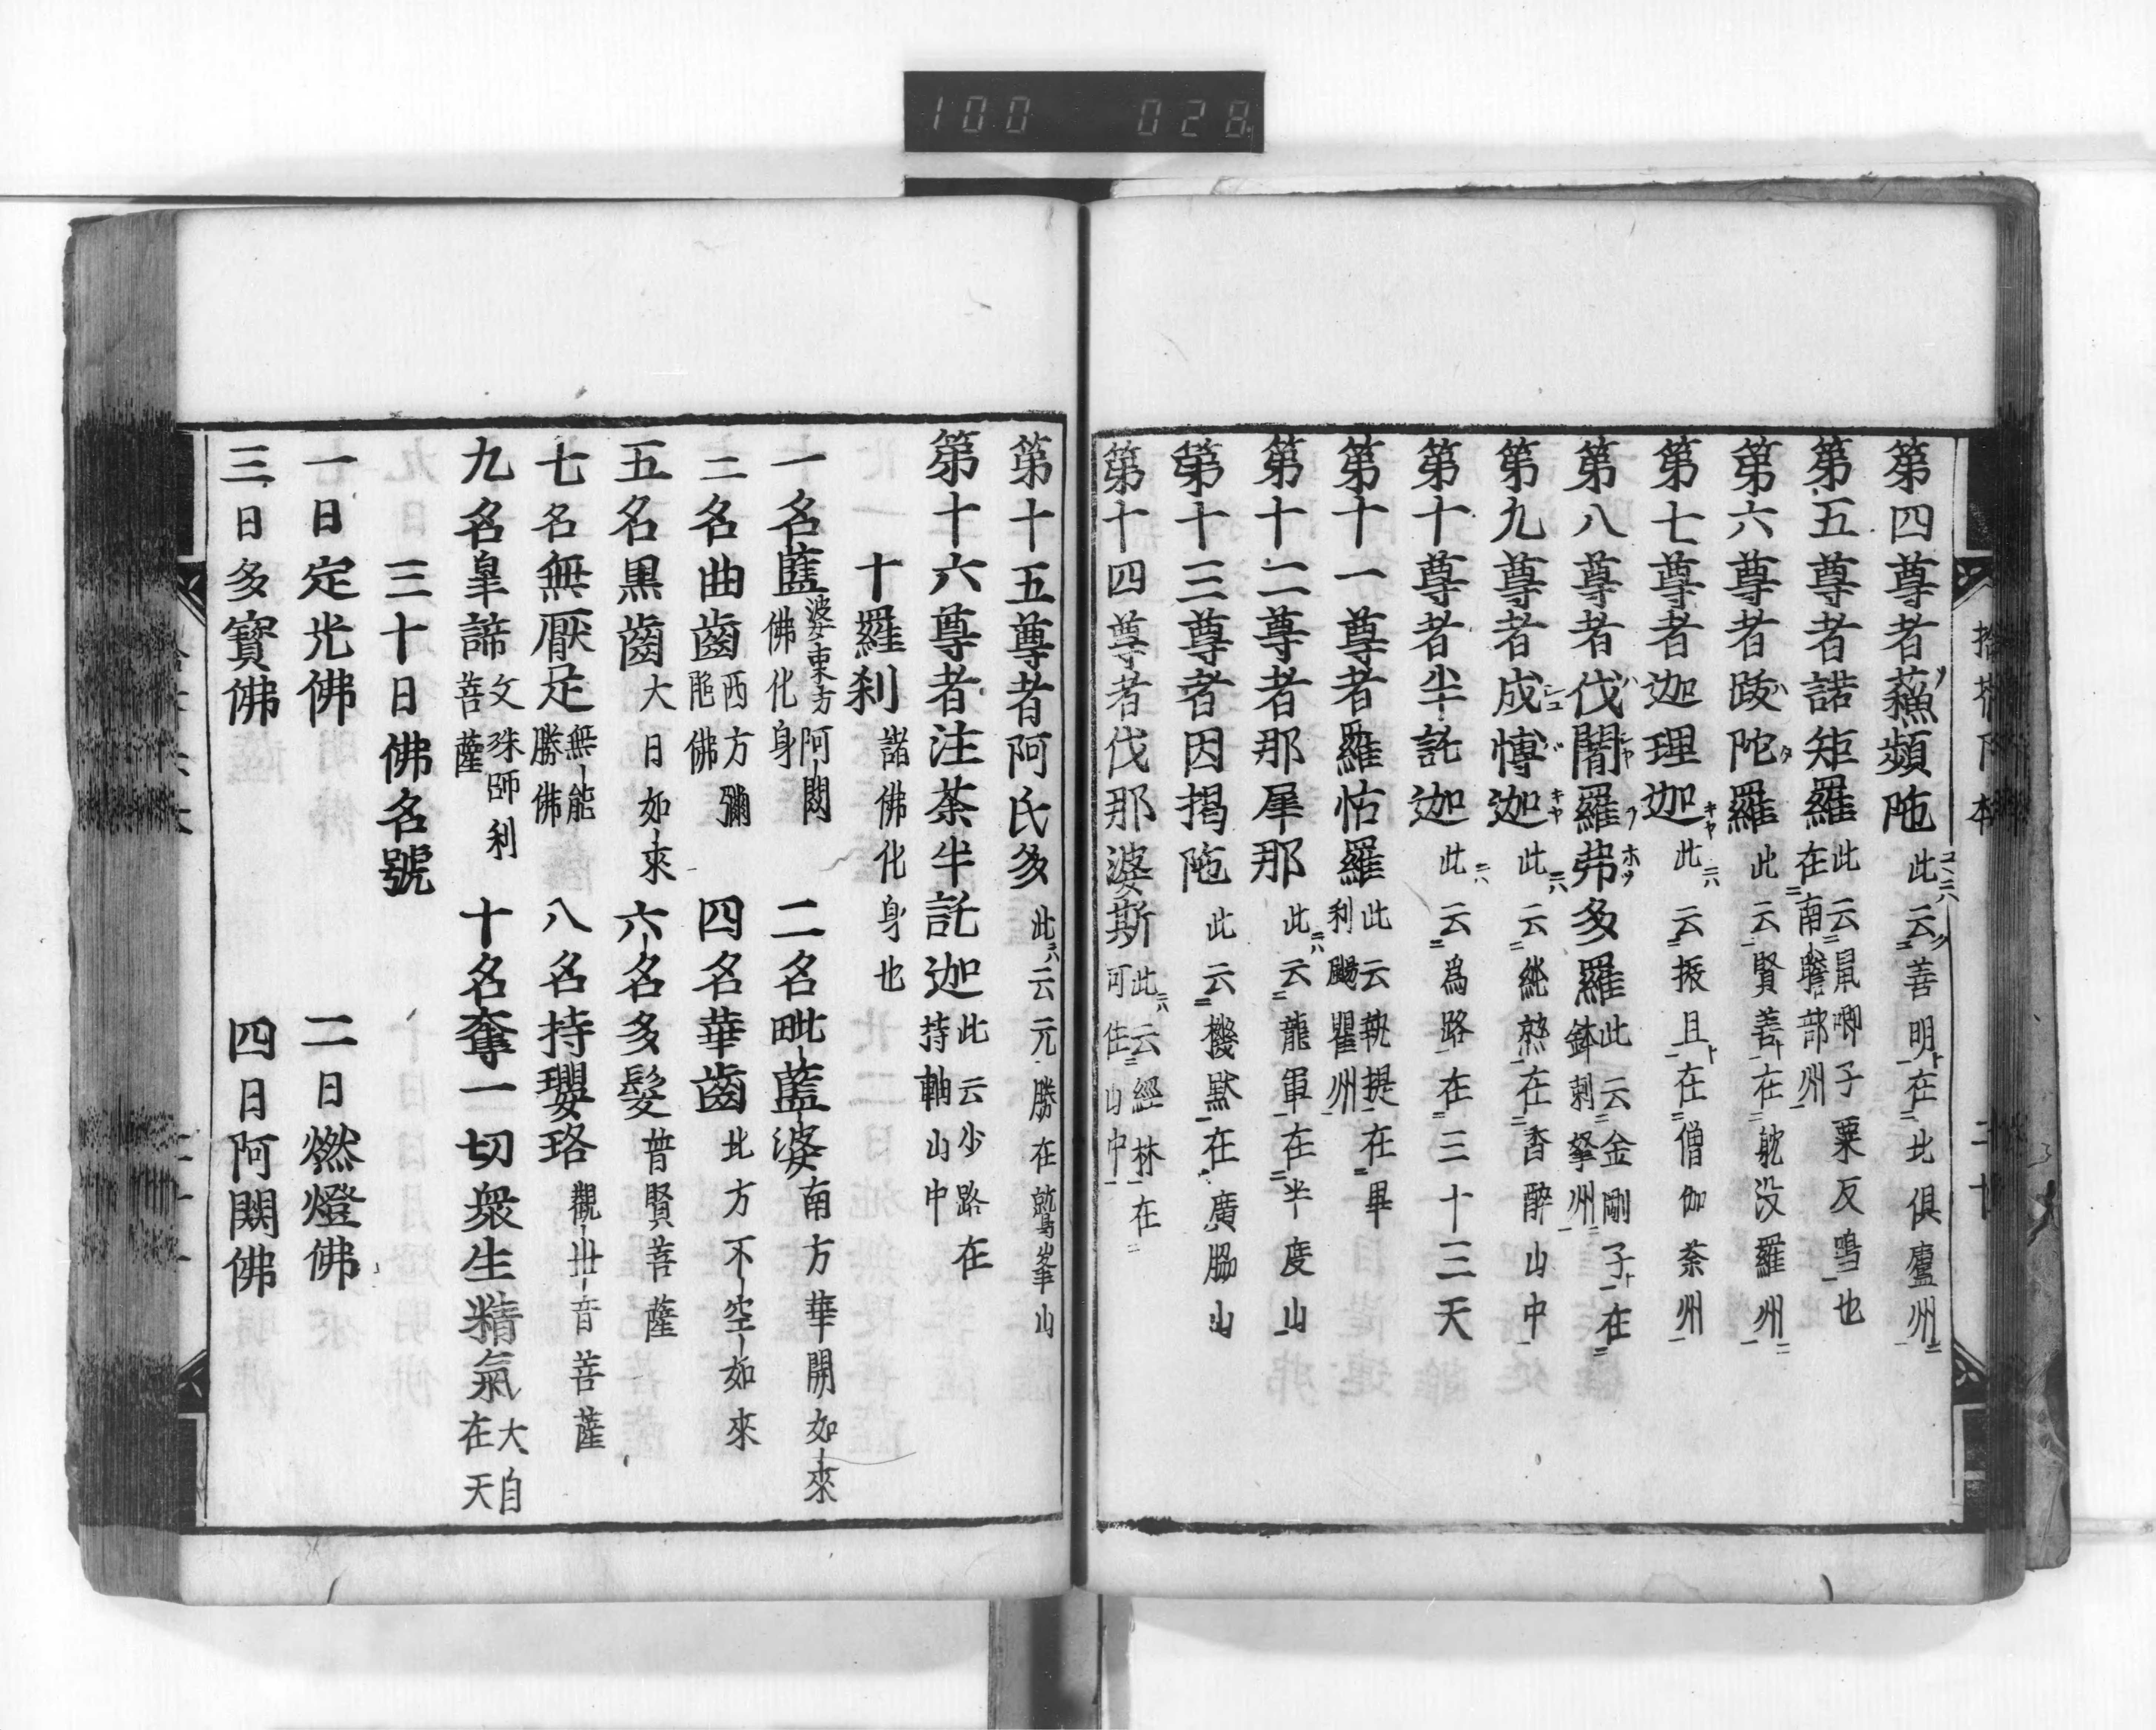 100 028
第四尊者蘓頻陁 此云善明在北俱盧州
第五尊者諾矩羅 此云鼠唧子栗反鳴也在南贍部州
第六尊者跋陀羅 此云賢善在躭没羅州
第七尊者迦理迦 此云振且在僧伽荼州
第八尊者伐闍羅弗多羅 此云金剛子在鉢剌拏州
第九尊者戍愽迦 此云純熟在香醉山中
第十尊者半託迦 此云爲路在三十三天
第十一尊者羅怙羅 此云執提在畢利颺瞿州
第十二尊者那犀那 此云龍軍在半度山
第十三尊者因揭陁 此云機黙在廣脇山
第十四尊者伐那婆斯 此云經林在可住山中
第十五尊者阿氏多 此云元勝在鷲峯山
第十六尊者注荼半託迦 此云少路在持軸山中
十羅刹 諸佛化身也
一名藍婆 東方阿閦佛化身 二名毗藍婆 南方華開如來
三名曲齒 西方彌陁佛 四名華齒 北方不空如來
五名黒齒 大日如來 六名多髮 普賢菩薩
七名無厭足 無能勝佛 八名持瓔珞 觀世音菩薩
九名皐諦 文殊師利菩薩 十名奪一切衆生精氣 大自在天
三十日佛名號
一日定光佛 二日燃燈佛
三日多寳佛 四日阿閦佛